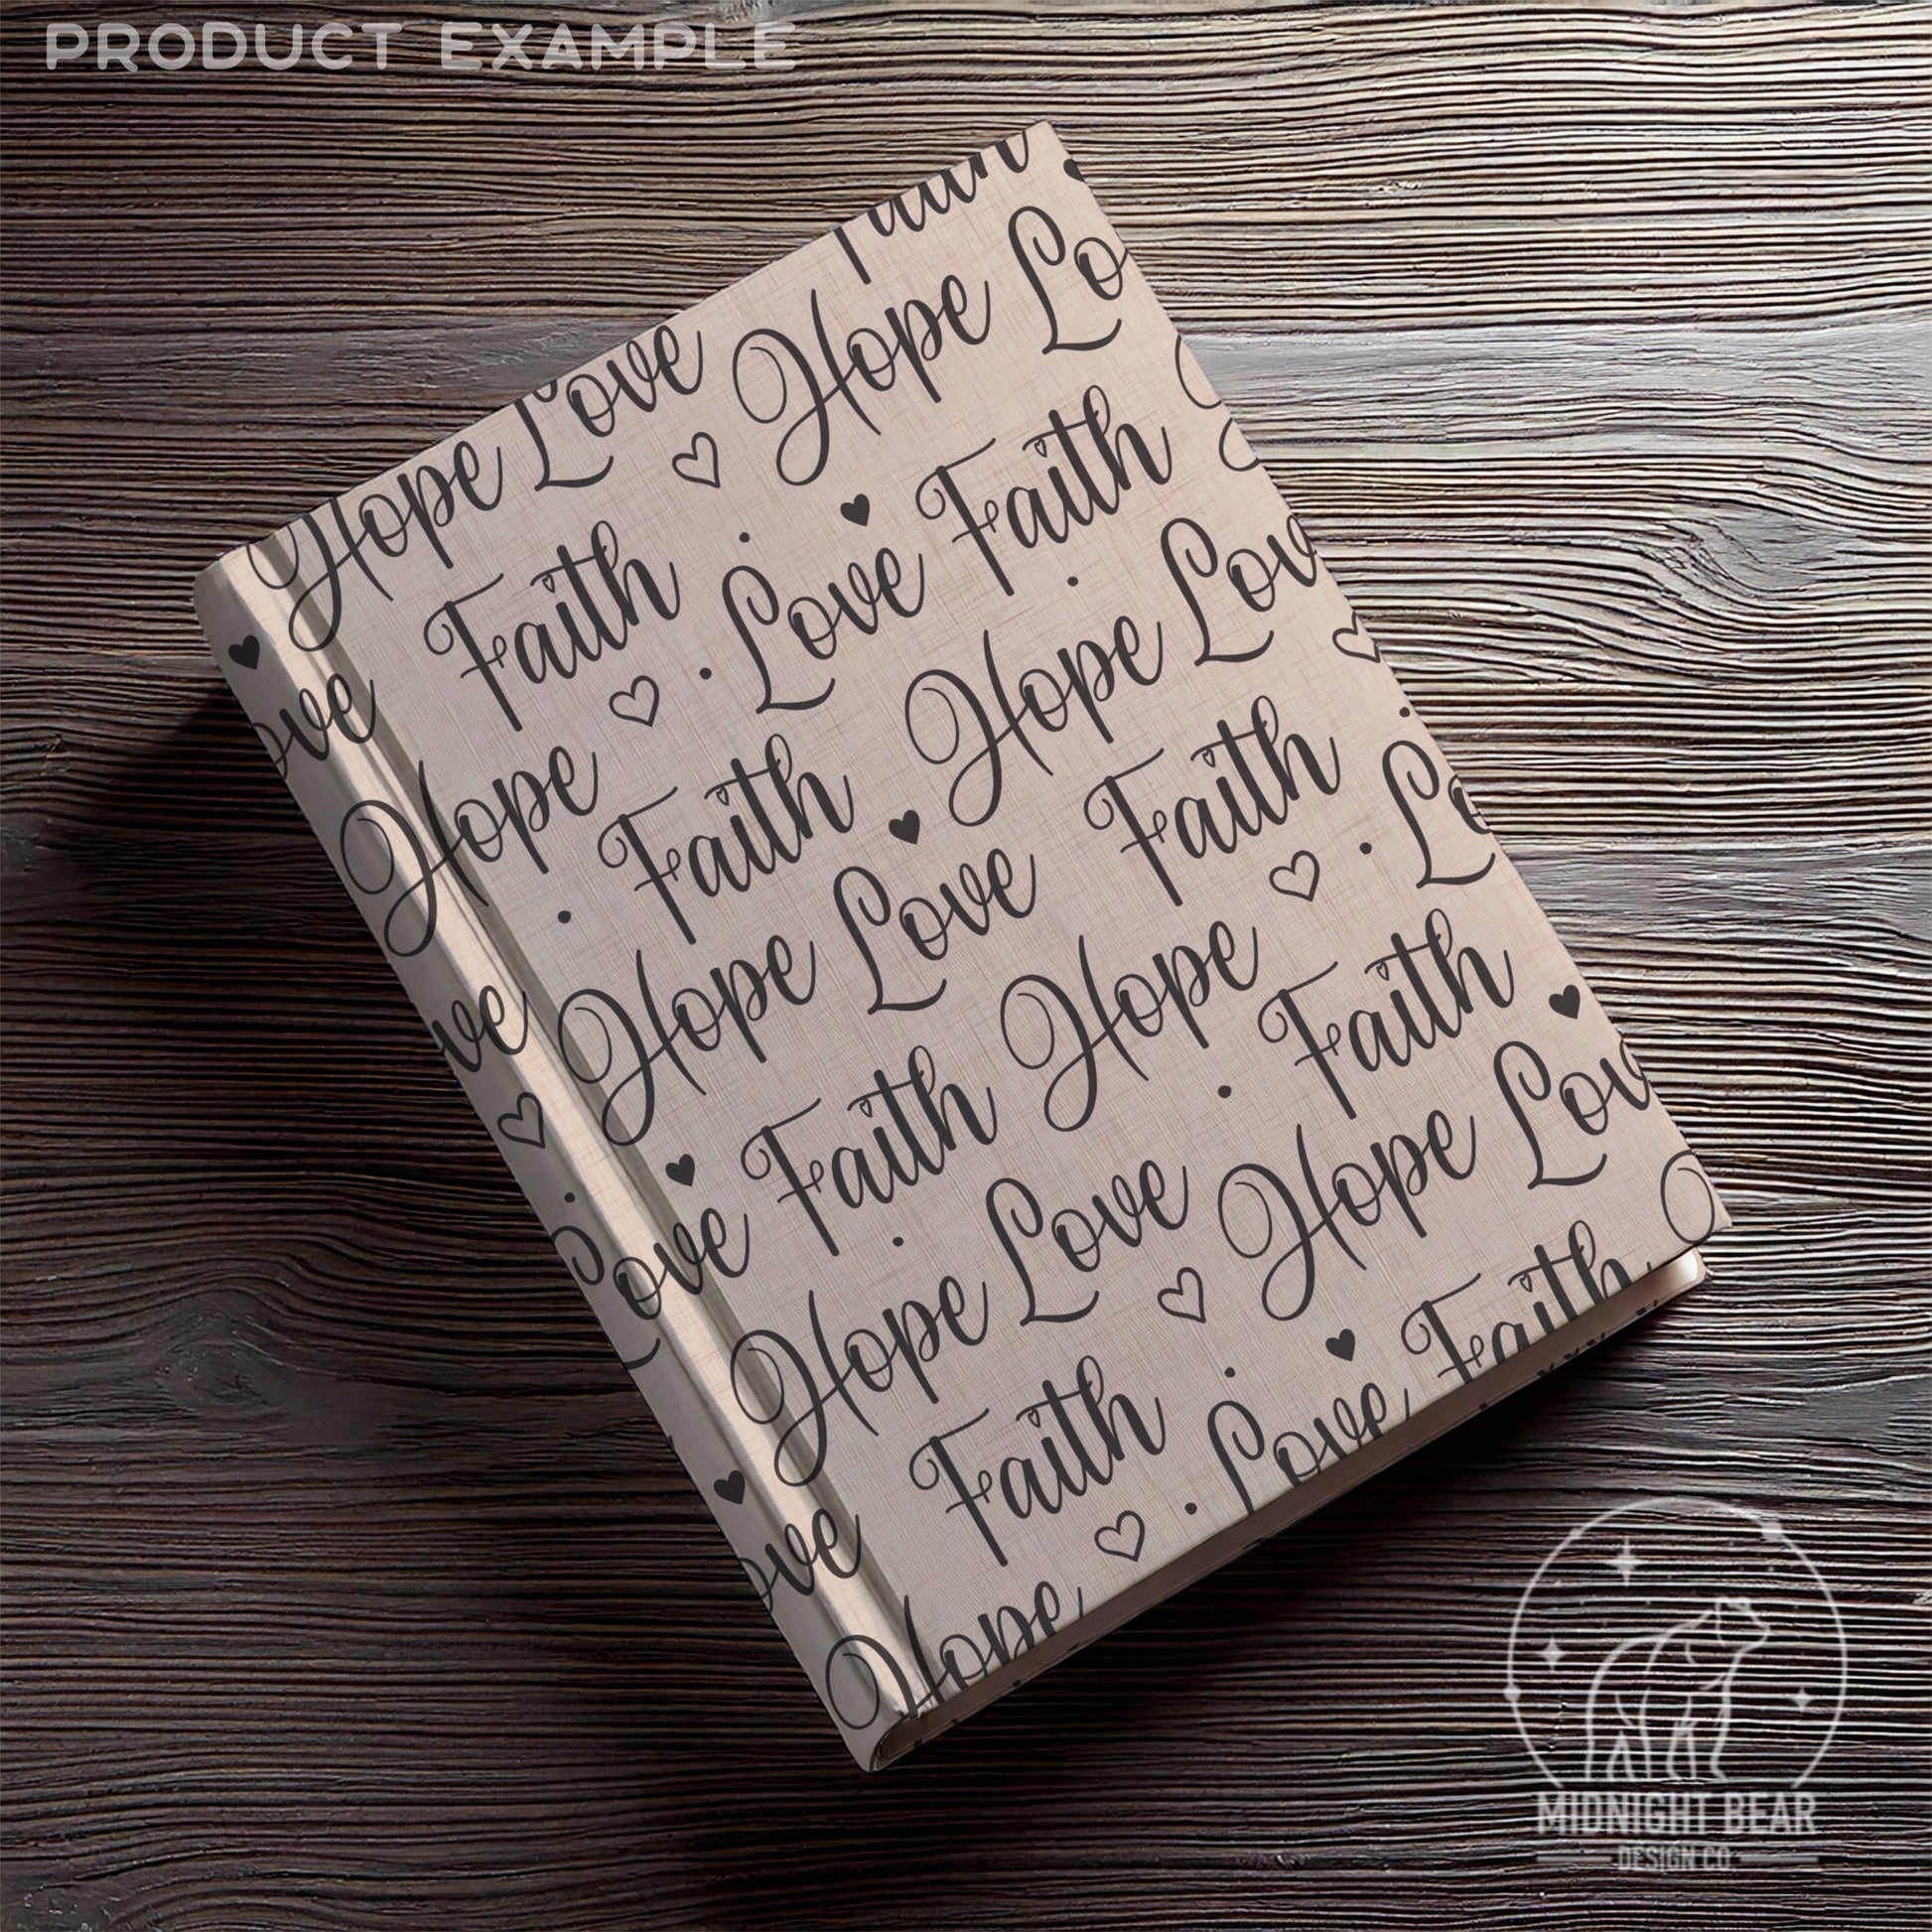 PRODUCT EXAMPLE
Faith
Hope Love Hope Lo
Faith Love Faith
ove Hope Faith Hope Lov
Hope Love Faith Lo
ve Love Faith Hope Faith
Hope Love Hope Lov
ove Faith Love Faith
Hope
MIDNIGHT BEAR
DESIGN CO